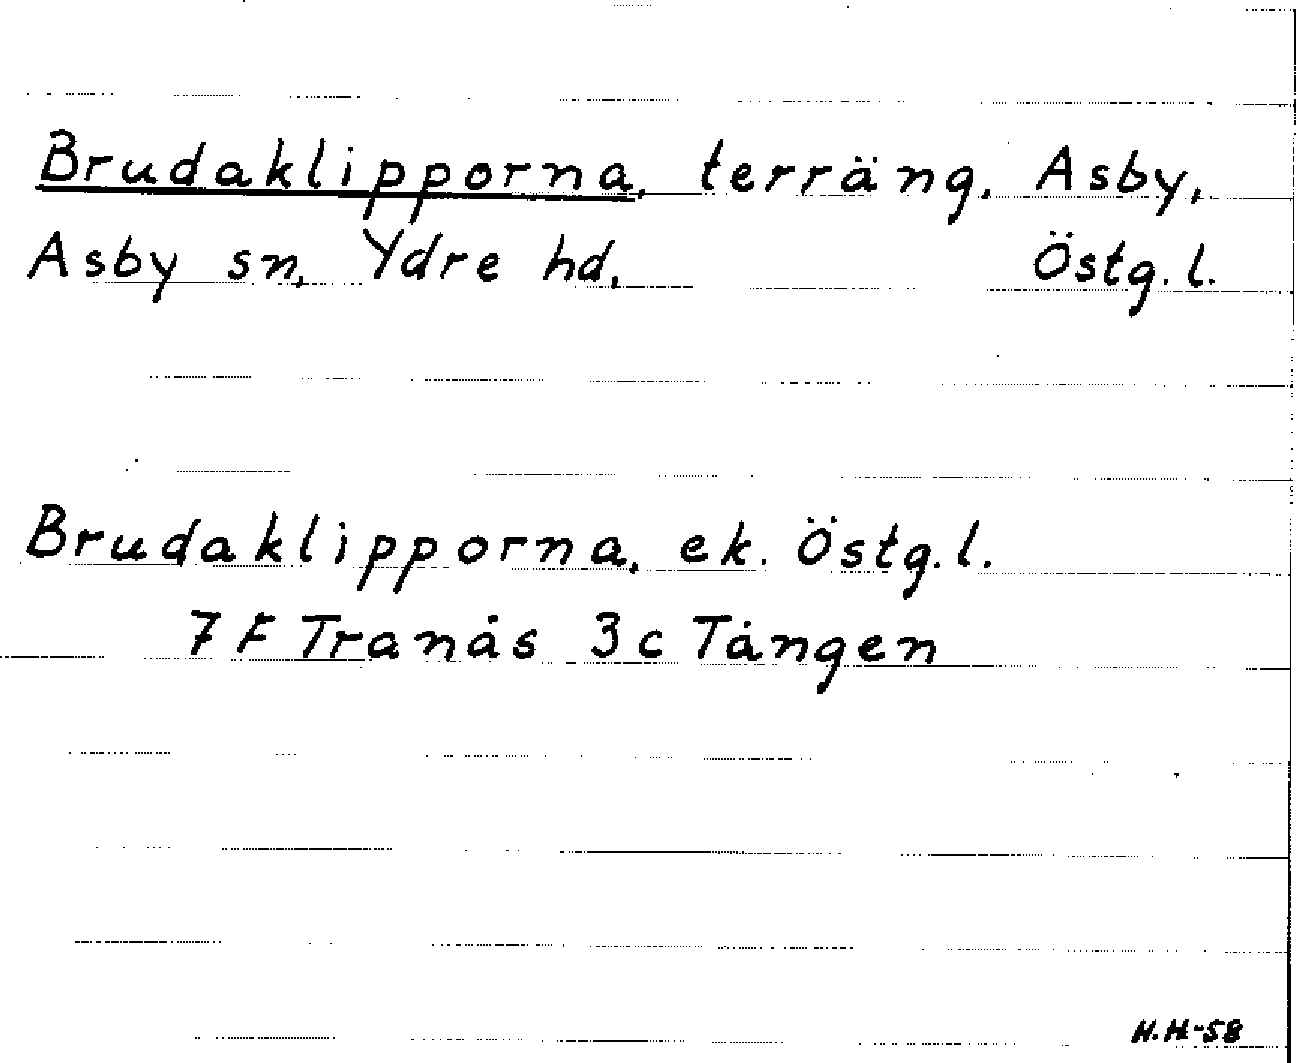 Brudaklipporna, terräng, Asby,
Asby sn, Ydre hd, Östg. l.
Brudaklipporna, ek. Östg. l.
7 F Tranås 3 c Tången
H.H-58